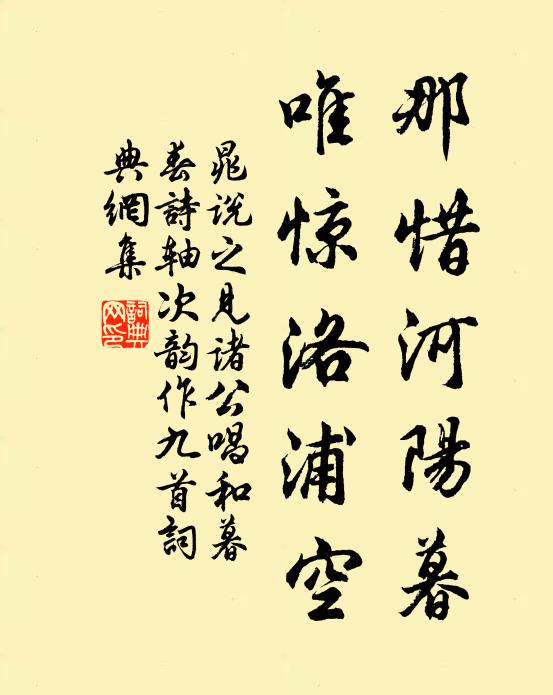 那惜河陽暮
唯惊洛浦空
晁说之见诸公唱和暮
春詩轴次韵作九首詞
典網集
詞典
网印